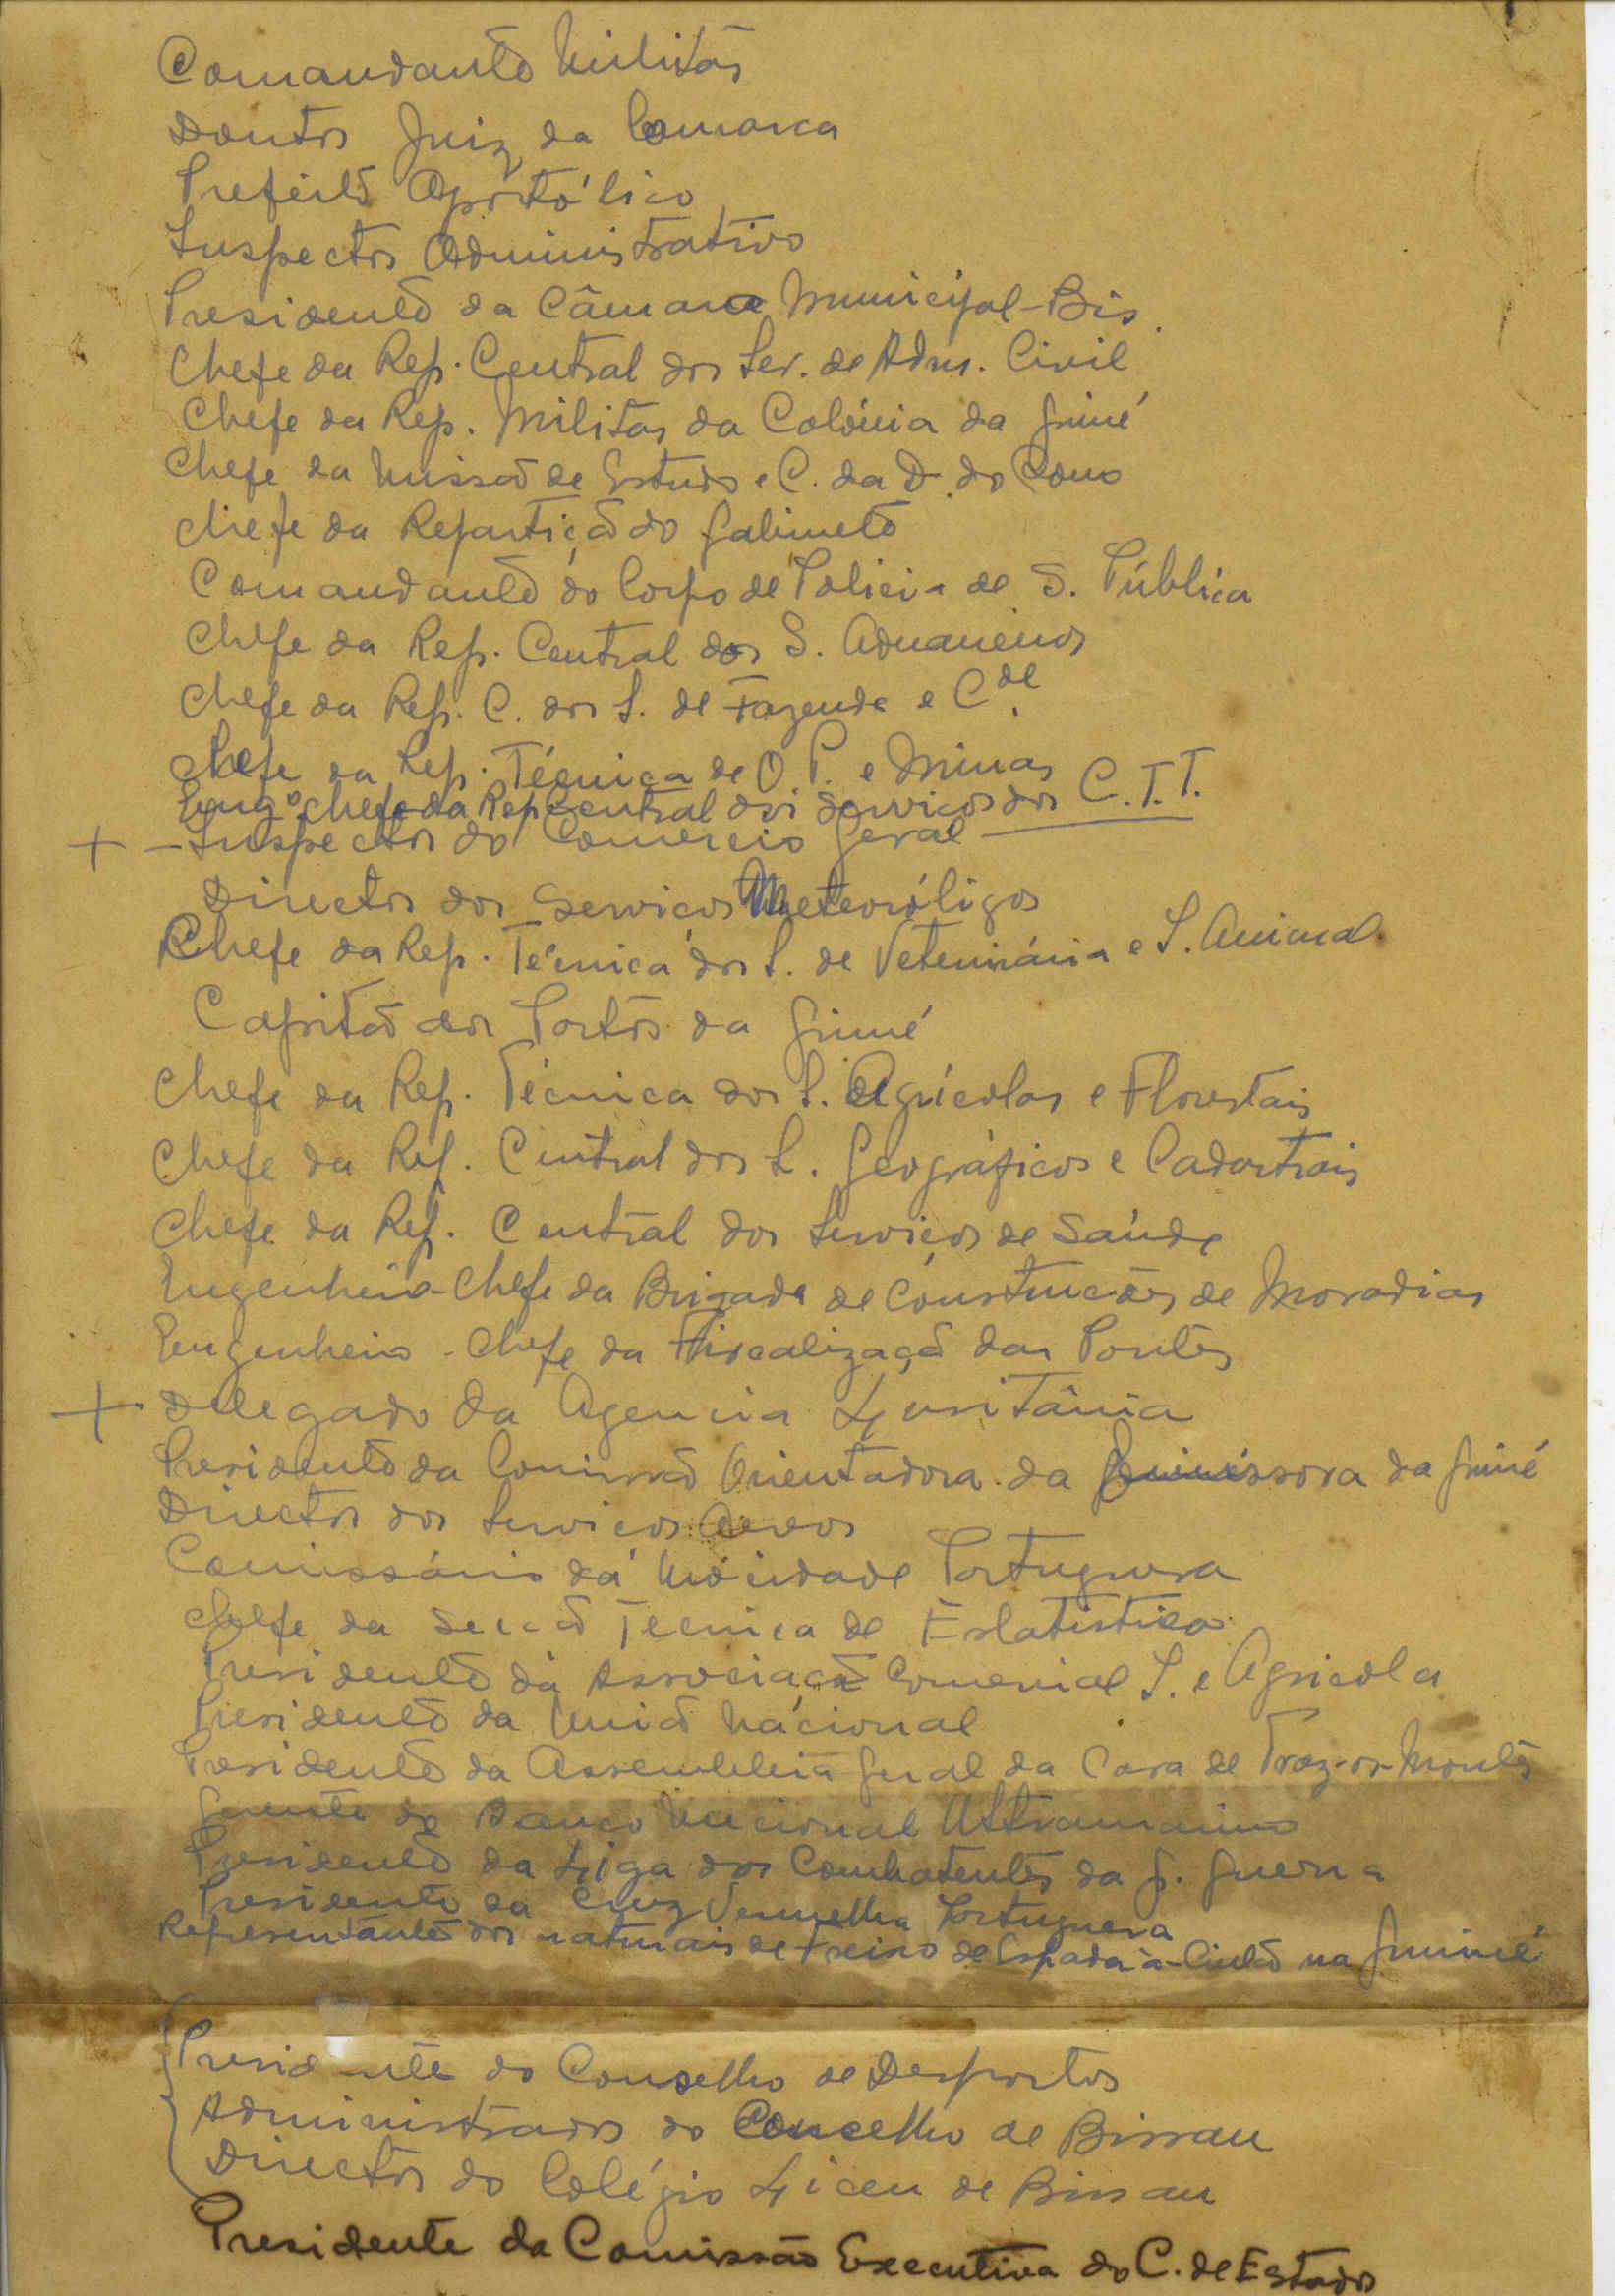 Comandante Militar
Doutor Juiz da Comarca
Prefeito Apostólico
Inspector Administrativo
Presidente da Câmara Municipal - Bis.
Chefe da Rep. Central dos Ser. de Adm. Civil
Chefe da Rep. Militar da Colónia da Guiné
Chefe da Missão de Estudo e C. da D. do Sono
Chefe da Repartição do Gabinete
Comandante do Corpo de Polícia de S. Pública
Chefe da Rep. Central dos S. Aduaneiros
Chefe da Rep. C. dos S. de Fazenda e C.de
Chefe da Rep. Técnica de O. P. e Minas
Eng.º Chefe da Rep Central dos Serviços dos C.T.T.
+ - Inspector do Comercio Geral
Director dos Serviços Meteoróligos
Chefe da Rep. Técnica dos S. de Veterinária e S. Animal.
Capitão dos Portos da Guiné
Chefe da Rep. Técnica dos S. Agrícolas e Florestais
Chefe da Rep. Central dos S. Geográficos e Cadastrais
Chefe da Rep. Central dos Serviços de Saúde
Engenheiro-Chefe da Brigada de Construções de Moradias
Engenheiro-Chefe da Fiscalização das Pontes
+ Delegado da Agencia Lusitânia
Presidente da Comissão Orientadora da da Guiné
Director dos Serviços Aereos
Comissário da Mocidade Portuguesa
Chefe da Secção Tecnica de Estatistica
Presidente da Associação Comercial I. e Agricola
Presidente da União Nacional
Presidente da Assembleia Geral da Casa de Traz-os-Montes
Gerente do Banco Nacional Ultramarino
Presidente da Liga dos Combatentes da G. Guerra
Presidente da Cruz Vermelha Portuguesa
Representante dos naturais de Freixo de Espada-à-Cinta na Guiné
Presidente do Conselho de Desportos
Administrador do Concelho de Bissau
Director do Colégio Liceu de Bissau
Presidente da Comissão Executiva do C. de Estados